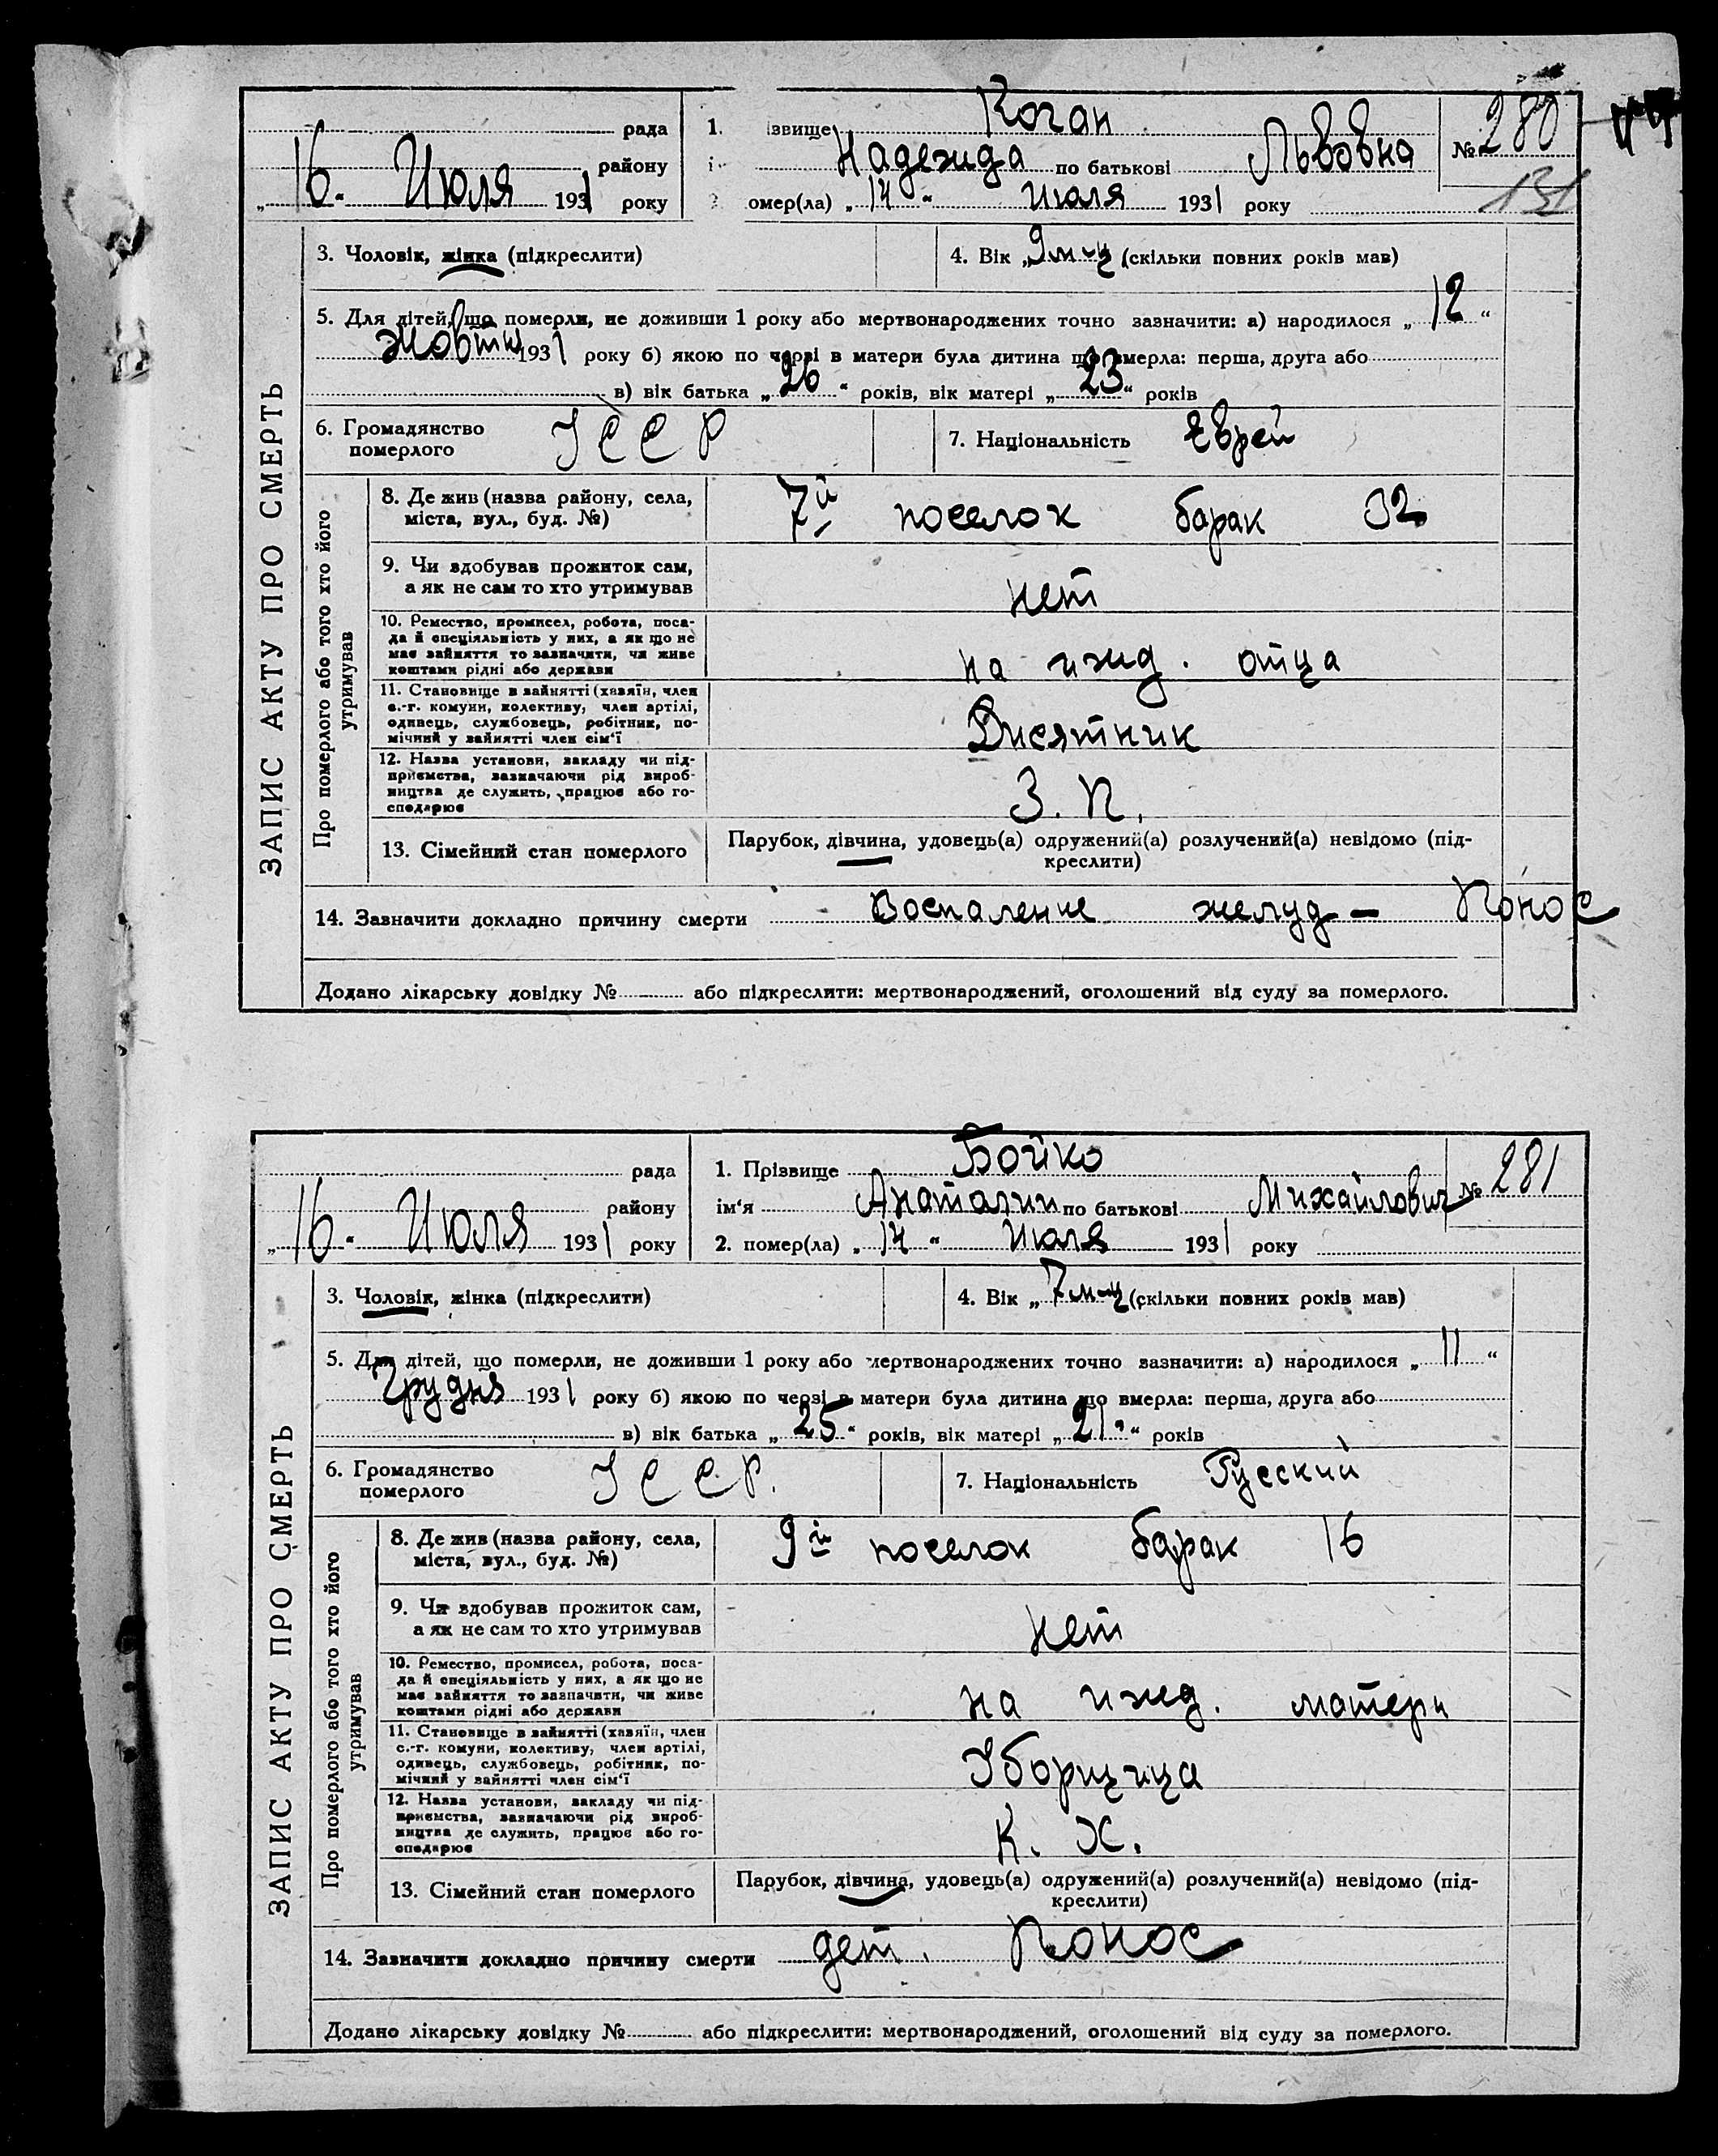 ЗАПИС АКТУ ПРО СМЕРТЬ
рада
району
„16“ Июля 1931 року
1. ізвище Коган
Надежда по батькові Львовна
омер(ла) „14“ Июля 1931 року
№ 280
131
3. Чоловік, жінка (підкреслити)
4. Вік „9 м-ц (скільки повних років мав)
5. Для дітей, що померли, не доживши 1 року або мертвонароджених точно зазначити: а) народилося „12“
Жовтня 1931 року б) якою по черзі в матери була дитина що вмерла: перша, друга або
в) вік батька „26“ років, вік матері „23“ років
6. Громадянство
померлого
УССР
7. Національність Еврей
Про померлого або того хто його
утримував
8. Де жив (назва району, села,
міста, вул., буд. №)
7й поселок барак 32
9. Чи здобував прожиток сам,
а як не сам то хто утримував
нет
10. Ремество, промисел, робота, поса-
да й спеціяльність у них, а як що не
має зайняття то зазначити, чи живе
коштами рідні або держави
на ижд. отца
11. Становище в зайнятті (хазяїн, член
с.-г. комуни, колективу, член артілі,
одинець, службовець, робітник, по-
мічний у зайнятті член сім'ї
Дисятник
12. Назва установи, закладу чи під-
приємства, зазначаючи рід вироб-
ництва де служить, працює або го-
сподарює
З. П.
13. Сімейний стан померлого
Парубок, дівчина, удовець(а) одружений(а) розлучений(а) невідомо (під-
креслити)
14. Зазначити докладно причину смерти Воспаление желуд – Понос
Додано лікарську довідку № або підкреслити: мертвонароджений, оголошений від суду за померлого.
ЗАПИС АКТУ ПРО СМЕРТЬ
рада
району
„16“ Июля 1931 року
1. Прізвище Бойко
ім'я Анаталии по батькові Михайлович
2. помер(ла) „14“ Июля 1931 року
№ 281
3. Чоловік, жінка (підкреслити)
4. Вік „7 м-ц (скільки повних років мав)
5. Для дітей, що померли, не доживши 1 року або мертвонароджених точно зазначити: а) народилося „11“
Грудня 1931 року б) якою по черзі в матери була дитина що вмерла: перша, друга або
в) вік батька „25“ років, вік матері „21“ років
6. Громадянство
померлого
УССР.
7. Національність Русский
Про померлого або того хто його
утримував
8. Де жив (назва району, села,
міста, вул., буд. №)
9й поселок барак 16
9. Чи здобував прожиток сам,
а як не сам то хто утримував
нет
10. Ремество, промисел, робота, поса-
да й спеціяльність у них, а як що не
має зайняття то зазначити, чи живе
коштами рідні або держави
на ижд. матери
11. Становище в зайнятті (хазяїн, член
с.-г. комуни, колективу, член артілі,
одинець, службовець, робітник, по-
мічний у зайнятті член сім'ї
Уборщица
12. Назва установи, закладу чи під-
приємства, зазначаючи рід вироб-
ництва де служить, працює або го-
сподарює
К. Х.
13. Сімейний стан померлого
Парубок, дівчина, удовець(а) одружений(а) розлучений(а) невідомо (під-
креслити)
14. Зазначити докладно причину смерти дет. Понос
Додано лікарську довідку № або підкреслити: мертвонароджений, оголошений від суду за померлого.